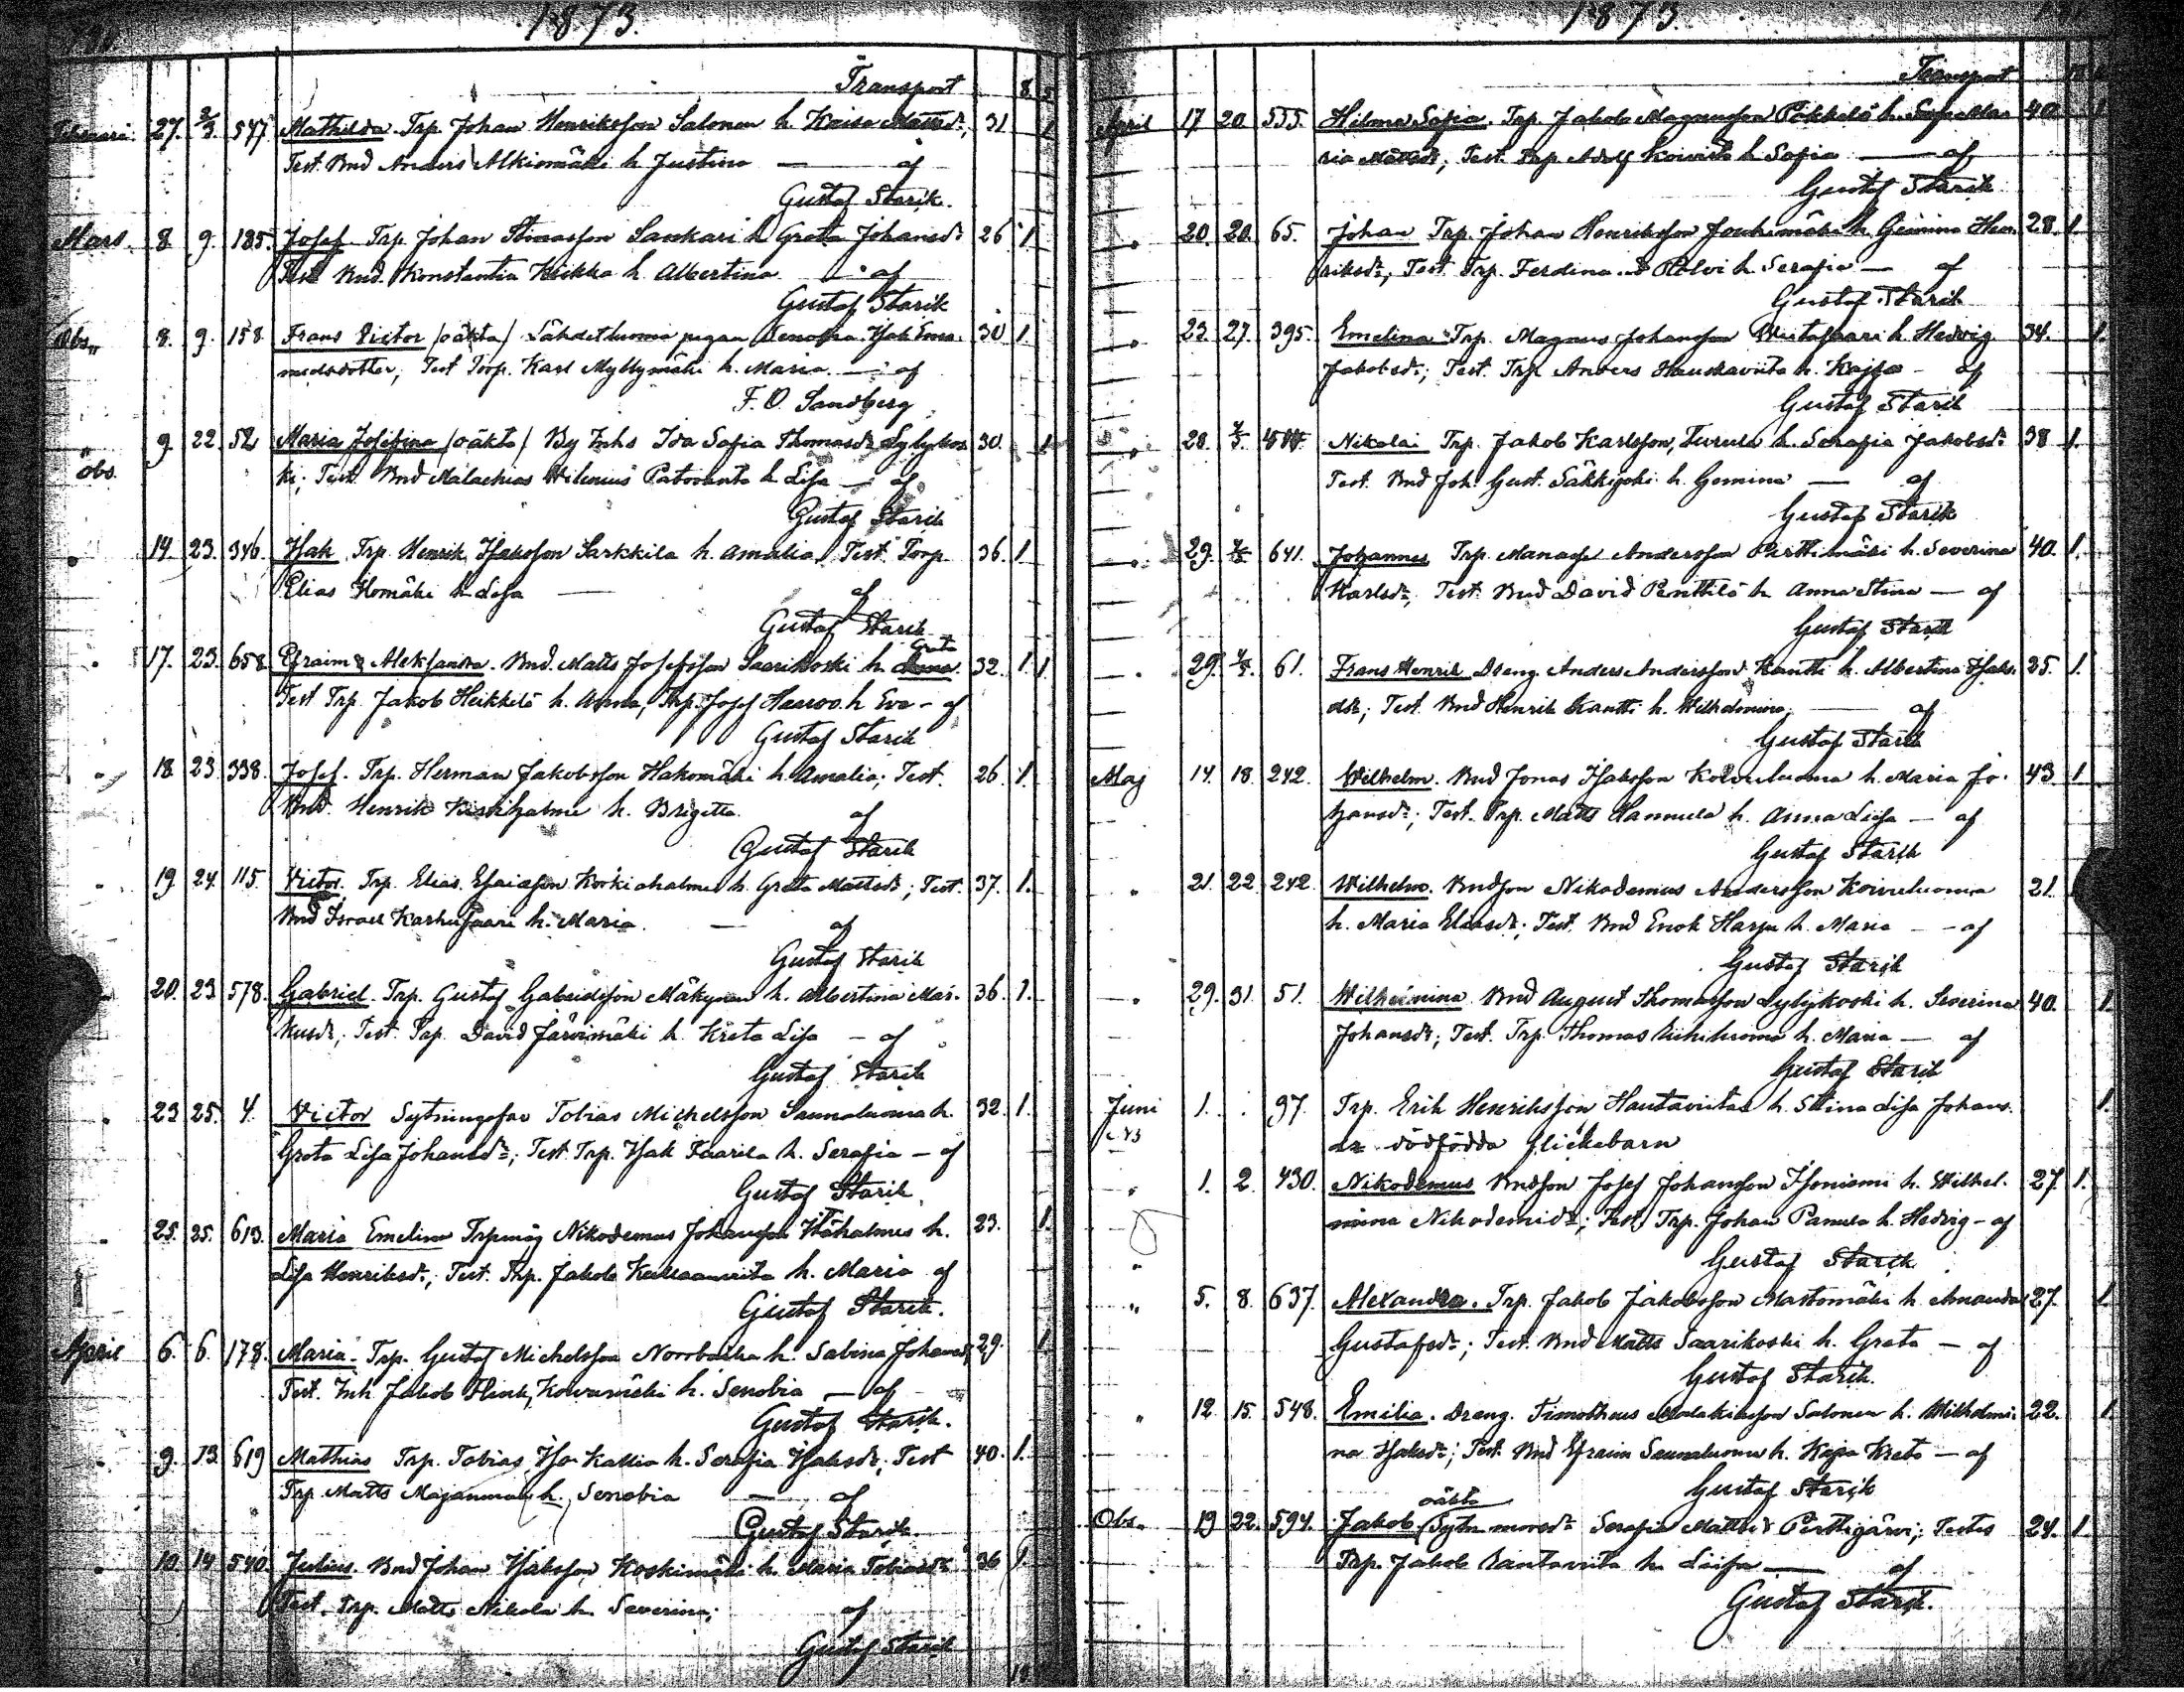 1873.
Transport 8 5
Februari 27. 2/3 547 Mathilda. Trp. Johan Henriksson Salonen h. Kaisa Mattsdr, 31 1
Test. Bnd Anders Alkiomäki h. Justina — af
Gustaf Starik.
Mars. 8 9. 185. Josef Trp. Johan Sankari h Greta Johansdr 26 1
Test Bnd. Konstantin Kiikka h. Albertina — af
Gustaf Starik
Obs. 8. 9. 158 Frans Victor /oäkta/ Lähdetluoma pigan Isak Ema- 30 1.
nuelsdotter, Test Torp. Karl Myllymäki h. Maria — af
F. O. Sandberg
" 9. 22 52 Maria Josefina /oäkta/ By Inhs Ida Sofia Thomasdr Lylykos- 30. 1
obs. ki; Test. Bnd Malachias Wilenius Patoranta h. Lisa — af
Gustaf Starik
14. 23. 346. Isak Trp. Henrik Isaksson Sarkkila h. Amalia, Test. Torp. 36. 1.
Elias Komäki h. Lisa — af
Gustaf Starik
Greta
17. 23. 658. Efraim & Aleksandra. Bnd. Matts Josefsson Saarikoski h. 32. 1. 1
Test Trp. Jakob Heikkilä h. Anna, Trp. Josef h Eva - af
Gustaf Starik
18. 23 338. Josef. Trp. Herman Jakobsson Hakomäki h. Amalia; Test. 26. 1.
Bnd. Henrik h. Brigitta. af
Gustaf Starik
19 24 115. Victor. Trp. Elias Esaiasson h. Greta Mattsdr; Test. 37. 1.
Bnd Israel Karhusaari h. Maria. — af
Gustaf Starik
20. 23 578. Gabriel. Trp. Gustaf Gabrielsson Mäkynen h. Albertina Mar- 36. 1.
kusdr; Test. Trp. David Järvimäki h. Kreta Lisa — af
Gustaf Starik
23 25. 4. Victor Sytningsfar Tobias Michelsson Saunaluoma h. 32. 1.
Greta Lisa Johansdr; Test. Trp. Isak Taarila h. Serafia — af
Gustaf Starik
25. 25. 613. Maria Emelina Trpmåg Nikodemus Johansson h. 23. 1.
Lisa Henriksdr; Test. Trp. Jakob h. Maria af
Gustaf Starik.
April 6. 6. 178. Maria. Trp. Gustaf Michelsson Norrbacka h. Sabina Johansdr, 29. 1.
Test. Inh. Jakob h. Senobia — af
Gustaf Starik.
9. 13 619 Mathias Trp. Tobias Kallio h. Serafia Isaksdr; Test 40. 1.
Trp. Matts h. Senobia — af
Gustaf Starik.
10 14 540. Julius. Bnd Johan Isaksson Koskimäki h. Maria Tobiasdr 36 1.
Test. Trp. Matts Nikola h. Severina; af
Gustaf Starik
1873.
Transport
April 17 20 555. Hilma Sofia. Trp. Jakob Magnusson Pökkelö h. Ma- 40 1
ria Mattsdr; Test. Trp Adolf Koivisto h. Sofia — af
Gustaf Starik
20. 20. 65. Johan Trp. Johan Henriksson Jouhimäki h. Gemina Hen- 28. 1.
riksdr; Test. Trp. Ferdinand Polvi h. Serafia — af
Gustaf Starik
23. 27. 395. Emelina Trp. Magnus Johansson h. Hedvig 34. 1.
Jakobsdr; Test. Trp. Anders Hauskaviita h. Kajsa — af
Gustaf Starik
28. Nikolai Trp. Jakob Karlsson, Turula h. Serafia Jakobsdr 38 1.
Test. Bnd Joh. Gust. Säkkijoki h. Gemina — af
Gustaf Starik
29. 641. Johannes Trp. Manasse Andersson Pirttimäki h. Severina 40. 1.
Karlsdr, Test. Bnd David Penttilä h. Anna Stina — af
Gustaf Starik
29. 61. Frans Henrik Dreng Anders Andersson Kantti h. Albertina Isaks- 25. 1.
dr; Test. Bnd Henrik Kantti h. Wilhelmina; — af
Gustaf Starik
Maj 14. 18. 242. Wilhelm. Bnd Jonas Isaksson Koivuluoma h. Maria Jo- 43. 1
hansdr; Test. Trp. Matts Hannula h. Anna Lisa — af
Gustaf Starik
21. 22. 242. Wilhelm. Bndson Nikodemus Andersson Koivuluoma 21.
h. Maria Eliasdr; Test. Bnd Enok Harju h. Maria — af
Gustaf Starik
29. 31. 51. Wilhelmina Bnd August Thomasson Lylykoski h. Severina 40. 1.
Johansdr; Test. Trp. Thomas h. Maria — af
Gustaf Starik
Juni 1. 97. Trp. Erik Henriksson Hautaviita h. Stina Lisa Johans- 1.
dr dödfödda flickebarn
" 1. 2. 430. Nikodemus Bndson Josef Johansson Isoniemi h. Wilhel- 27. 1.
mina Nikodemidr; Test. Trp. Johan Panula h. Hedvig - af
Gustaf Starik
" 5. 8. 637. Alexandra. Trp. Jakob Jakobsson Mastomäki h. Amanda 27. 1.
Gustafsdr; Test. Bnd Matts Saarikoski h. Greta — af
Gustaf Starik.
" 12. 15. 548. Emilia. Dreng. Timotheus Malakiasson Salonen h. Wilhelmi- 22. 1.
na Isaksdr; Test. Bnd Efraim Saunaluoma h. Kajsa Kreta — af
Gustaf Starik
oäkta
Obs. 19 22. 594. Jakob (Sytn. morsdr Serafia Mattsdr Pirttijärvi; Testes 24. 1
Trp. Jakob Rantaviita h. Lisa — af
Gustaf Starik.